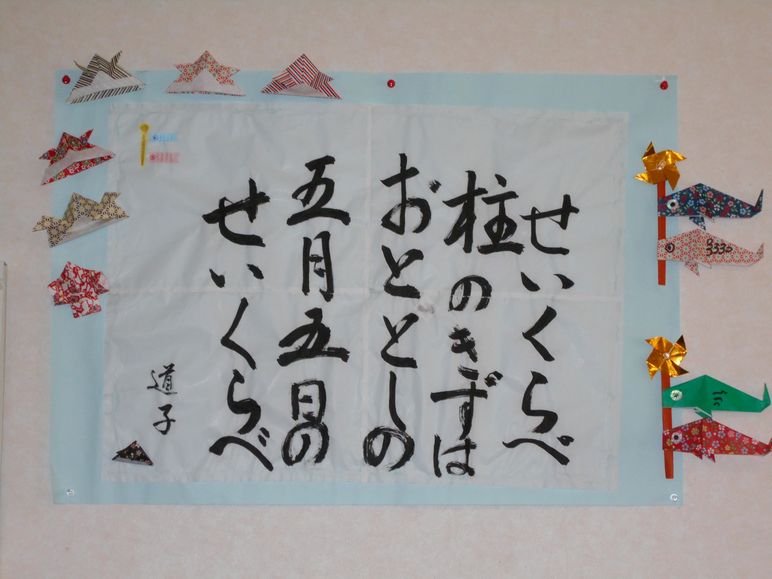 せいくらべ
柱のきずは
おととしの
五月五日の
せいくらべ
道子